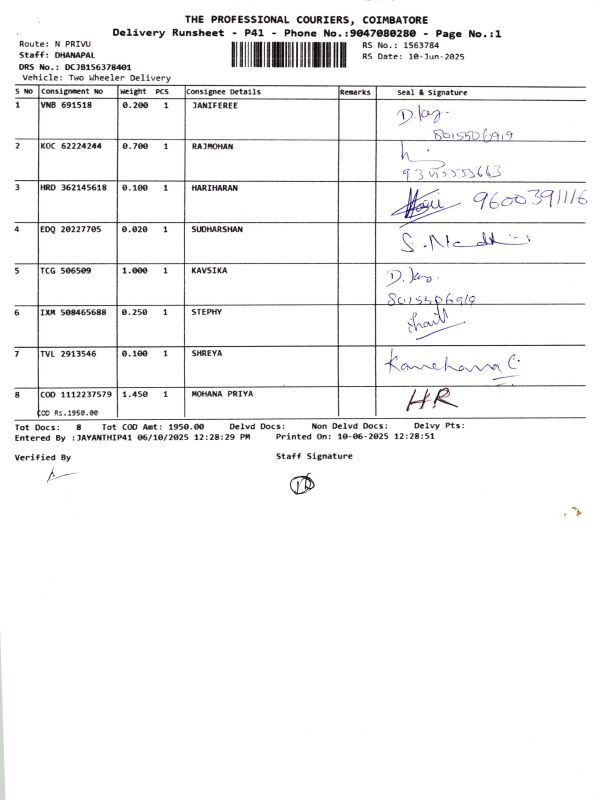 THE PROFESSIONAL COURIERS, COIMBATORE
Delivery Runsheet - P41 - Phone No.:9047080280 - Page No.:1
Route: N PRIVU RS No.: 1563784
Staff: DHANAPAL RS Date: 10-Jun-2025
DRS No.: DCJB156378401
Vehicle: Two Wheeler Delivery
S No Consignment No Weight PCS Consignee Details Remarks Seal & Signature
1 VNB 691518 0.200 1 JANIFEREE
8015506919
2 KOC 62224244 0.700 1 RAJMOHAN
3 HRD 362145618 0.100 1 HARIHARAN Hari 9600391116
4 EDQ 20227705 0.020 1 SUDHARSHAN
5 TCG 506509 1.000 1 KAVSIKA
8015506919
6 IXM 508465688 0.250 1 STEPHY
7 TVL 2913546 0.100 1 SHREYA
8 COD 1112237579 1.450 1 MOHANA PRIYA HR
COD Rs.1950.00
Tot Docs: 8 Tot COD Amt: 1950.00 Delvd Docs: Non Delvd Docs: Delvy Pts:
Entered By :JAYANTHIP41 06/10/2025 12:28:29 PM Printed On: 10-06-2025 12:28:51
Verified By Staff Signature